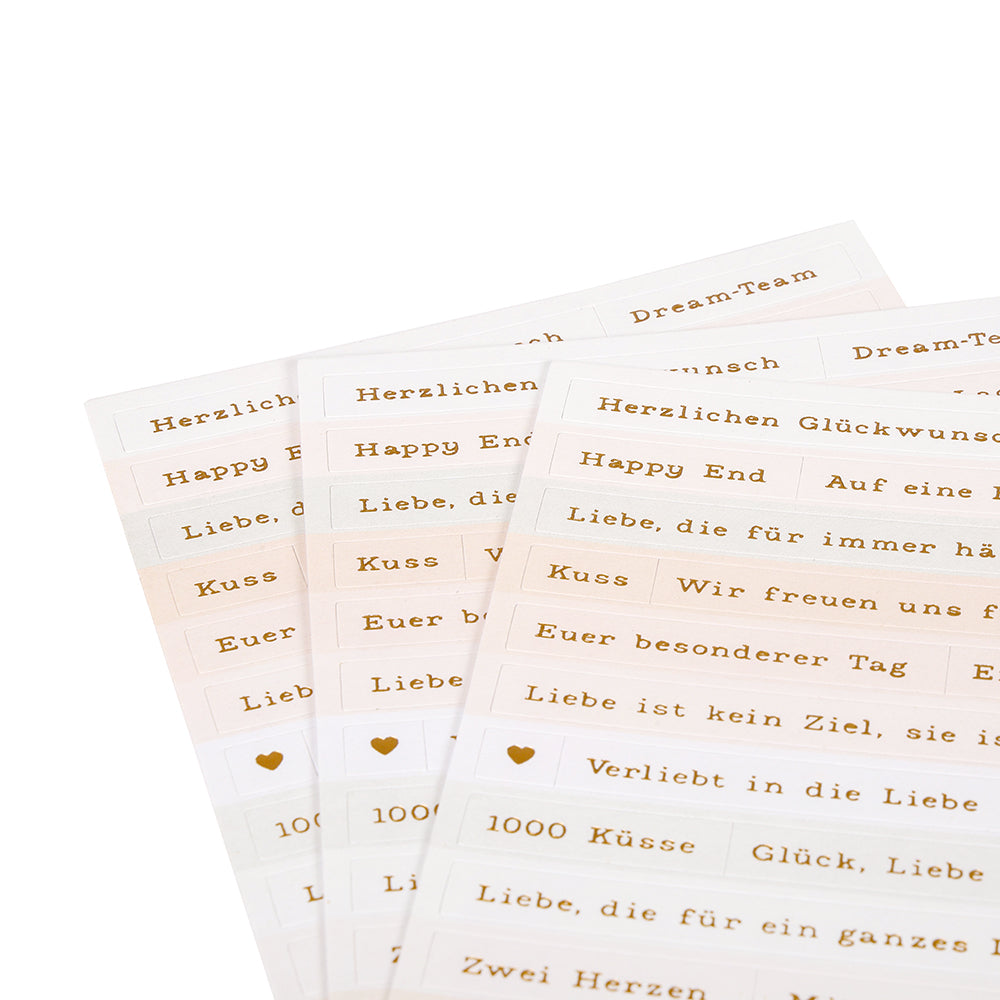 Dream-Team
Herzlichen
Happy
Liebe,
Kuss
Euer
Herzlichen
Dream-Te
Happy End
Liebe, die
Kuss
Euer
Liebe
Herzlichen Glückwunsc
Happy End Auf eine
Liebe, die für immer hä
Kuss Wir freuen uns f
Euer besonderer Tag
Liebe ist kein Ziel, sie is
Verliebt in die Liebe
1000 Küsse Glück, Liebe
Liebe, die für ein ganzes
Zwei Herzen